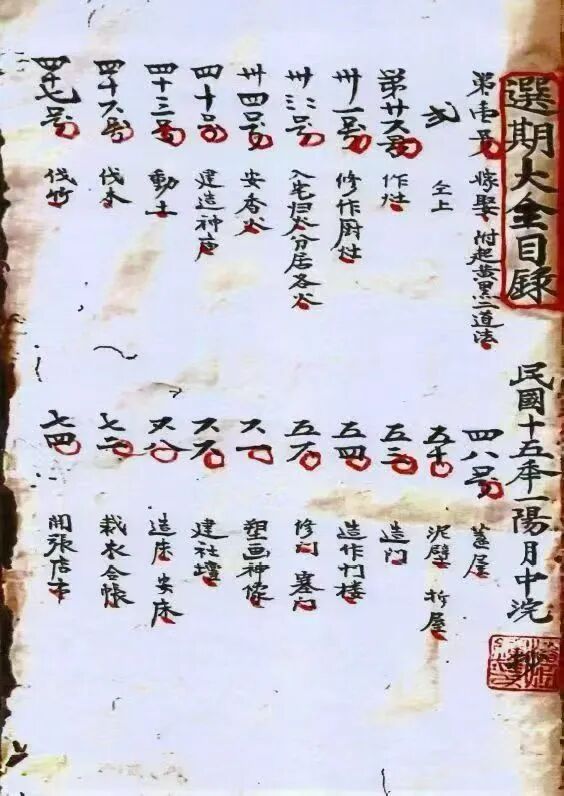 選期大全目錄
民國十五年一陽月中浣
抄
第壹号 嫁娶 附起黄黑二道法
弍 仝上
第廿六号 作灶
卅一号 修作厨灶
卅三号 入宅归火分居各火
卅四号 安香火
四十号 建造神庙
四十三号 動土
四十六号 伐木
四十七号 伐竹
四八号 蓋屋
五十 泥壁 拆屋
五三 造门
五四 造作门楼
五六 修门 塞门
六一 塑画神像
六六 建社壇
六八 造床 安床
七二 裁衣合帳
七四 開張店市